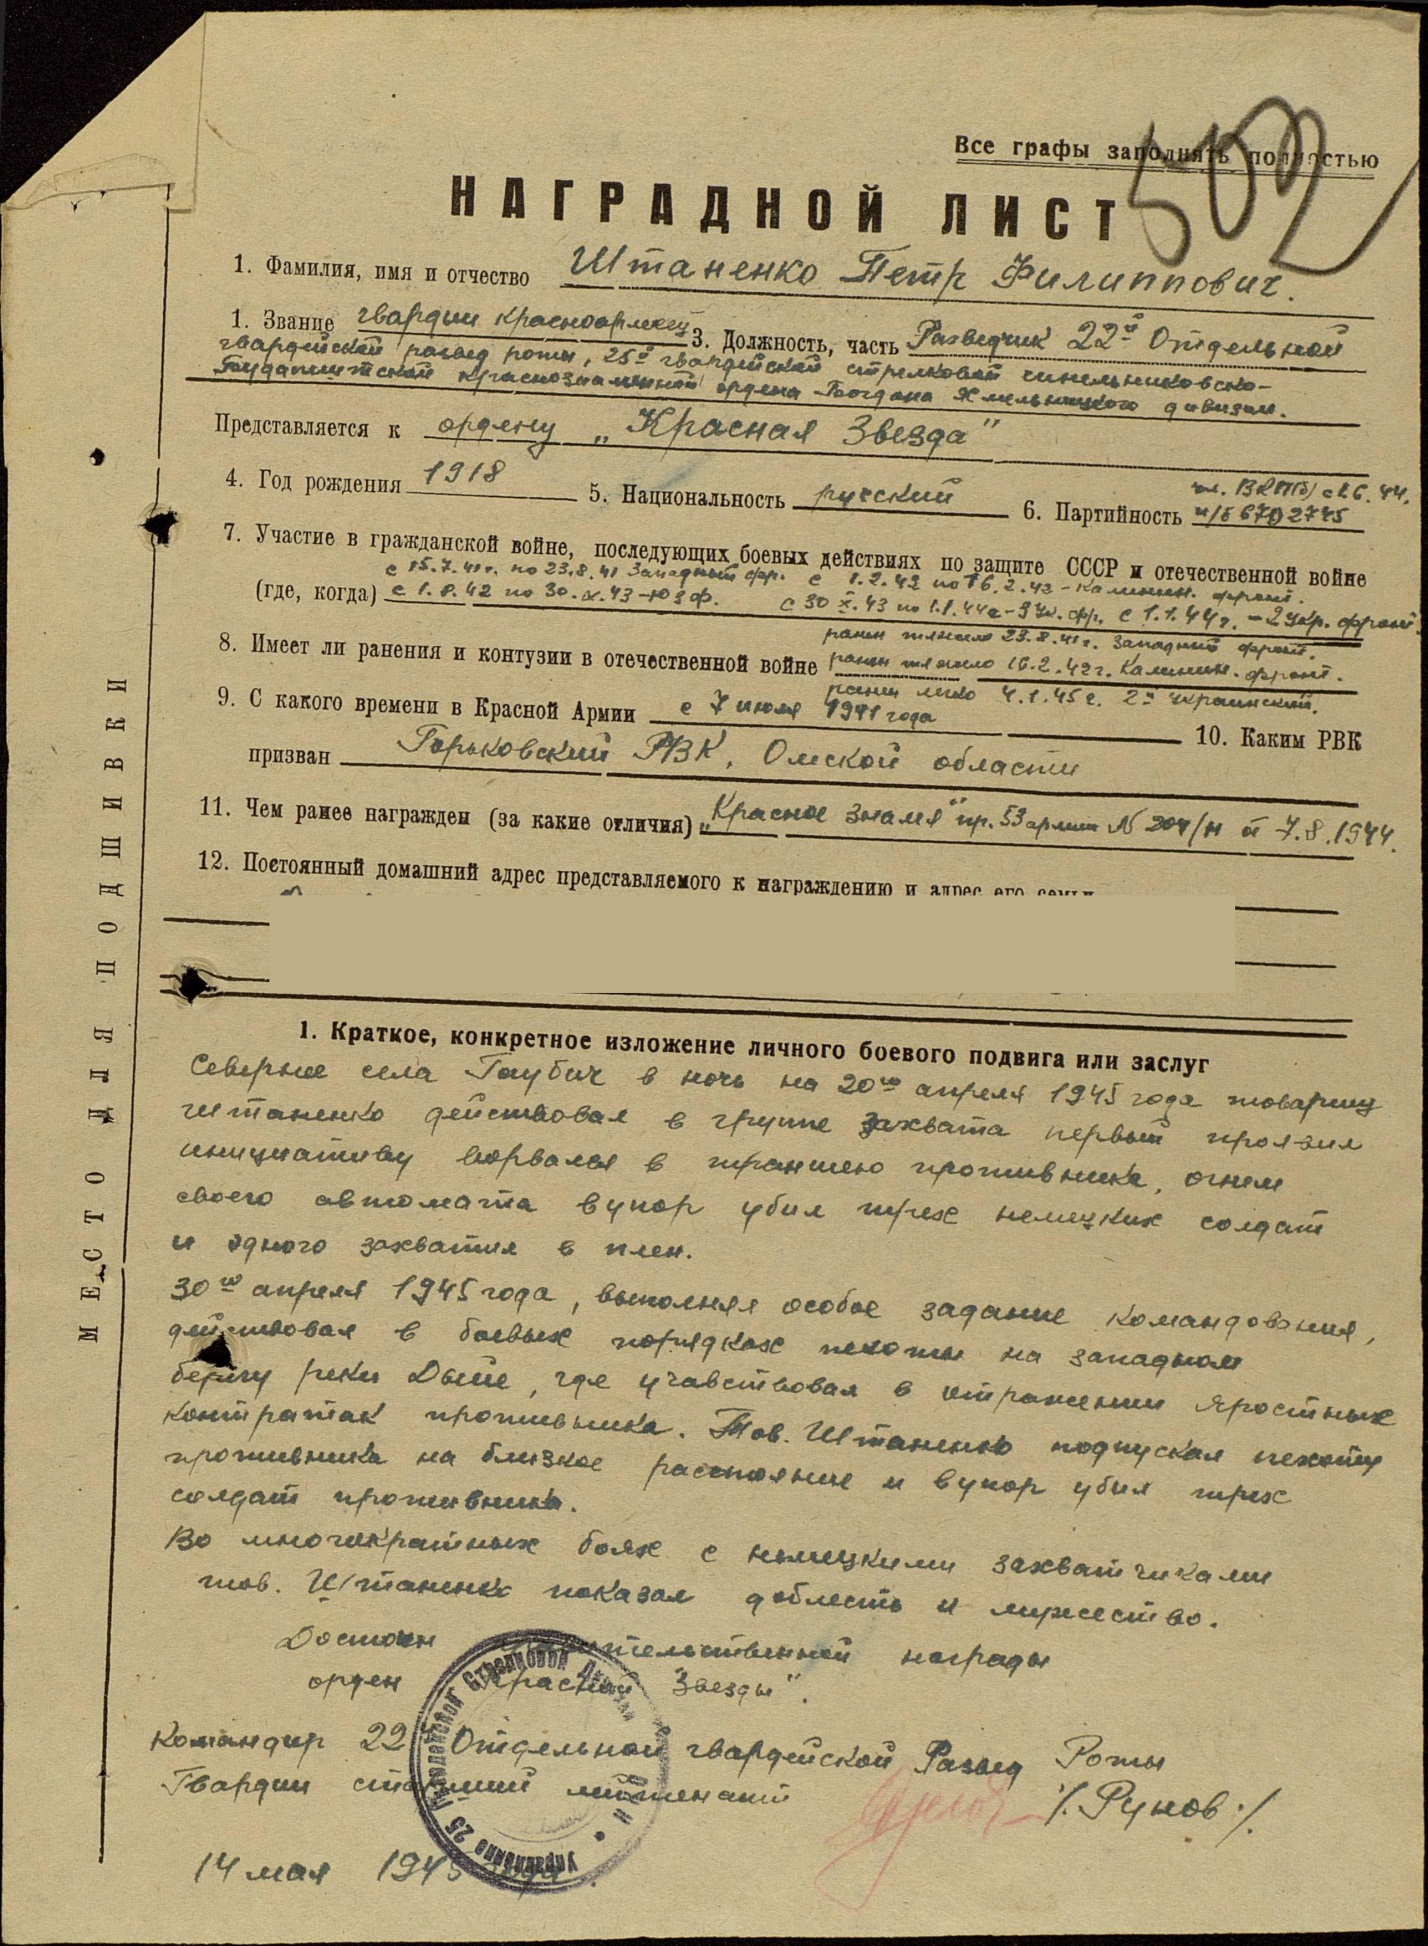 Все графы заполнять полностью
502
НАГРАДНОЙ ЛИСТ
1. Фамилия, имя и отчество Штаненко Петр Филиппович.
1. Звание гвардии красноармеец 3. Должность, часть Разведчик 22й Отдельной
гвардейской развед роты, 25й гвардейской стрелковой синельниковско-
Будапештской краснознаменной ордена Богдана Хмельницкого дивизии.
Представляется к ордену „Красная Звезда"
4. Год рождения 1918 5. Национальность русский 6. Партийность чл. ВКП(б) с 1.6.44.
п/б 6702745
7. Участие в гражданской войне, последующих боевых действиях по защите СССР и отечественной войне
с 15.7.41г. по 23.8.41 Западный фр. с 1.2.42 по 16.2.42 - Калинин. фронт.
(где, когда) с 1.8.42 по 30.X.43 - ЮЗФ. с 30 X.43 по 1.1.44г - 3 Ук. фр. с 1.1.44г. - 2 Укр. фронт.
ранен тяжело 23.8.41г. Западный фронт.
8. Имеет ли ранения и контузии в отечественной войне ранен тяжело 16.2.42г. Калинин. фронт.
ранен легко 4.1.45г. 2й Украинский.
9. С какого времени в Красной Армии с 7 июля 1941 года 10. Каким РВК
призван Горьковский РВК, Омской области
11. Чем ранее награжден (за какие отличия) „Красное знамя" пр. 53 армии № 204/н от 7.8.1944.
12. Постоянный домашний адрес представляемого к награждению и адрес его семьи
МЕСТО ДЛЯ ПОДШИВКИ
1. Краткое, конкретное изложение личного боевого подвига или заслуг
Севернее села Гаубич в ночь на 20го апреля 1945 года товарищ
Штаненко действовал в группе захвата первый проявил
инициативу ворвался в траншею противника, огнем
своего автомата в упор убил трех немецких солдат
и одного захватил в плен.
30го апреля 1945 года, выполняя особое задание командования,
действовал в боевых порядках пехоты на западном
берегу реки Дыйе, где учавствовал в отражении яростных
контратак противника. Тов. Штаненко подпускал пехоту
противника на близкое расстояние и в упор убил трех
солдат противника.
Во многократных боях с немецкими захватчиками
тов. Штаненко показал доблесть и мужество.
Достоин правительственной награды
орден „Красной Звезды".
Командир 22й Отдельной гвардейской Развед Роты
Гвардии старший лейтенант /. Рунов ./
14 мая 1945 года.
Управление 25 Гвардейской Стрелковой Дивизии